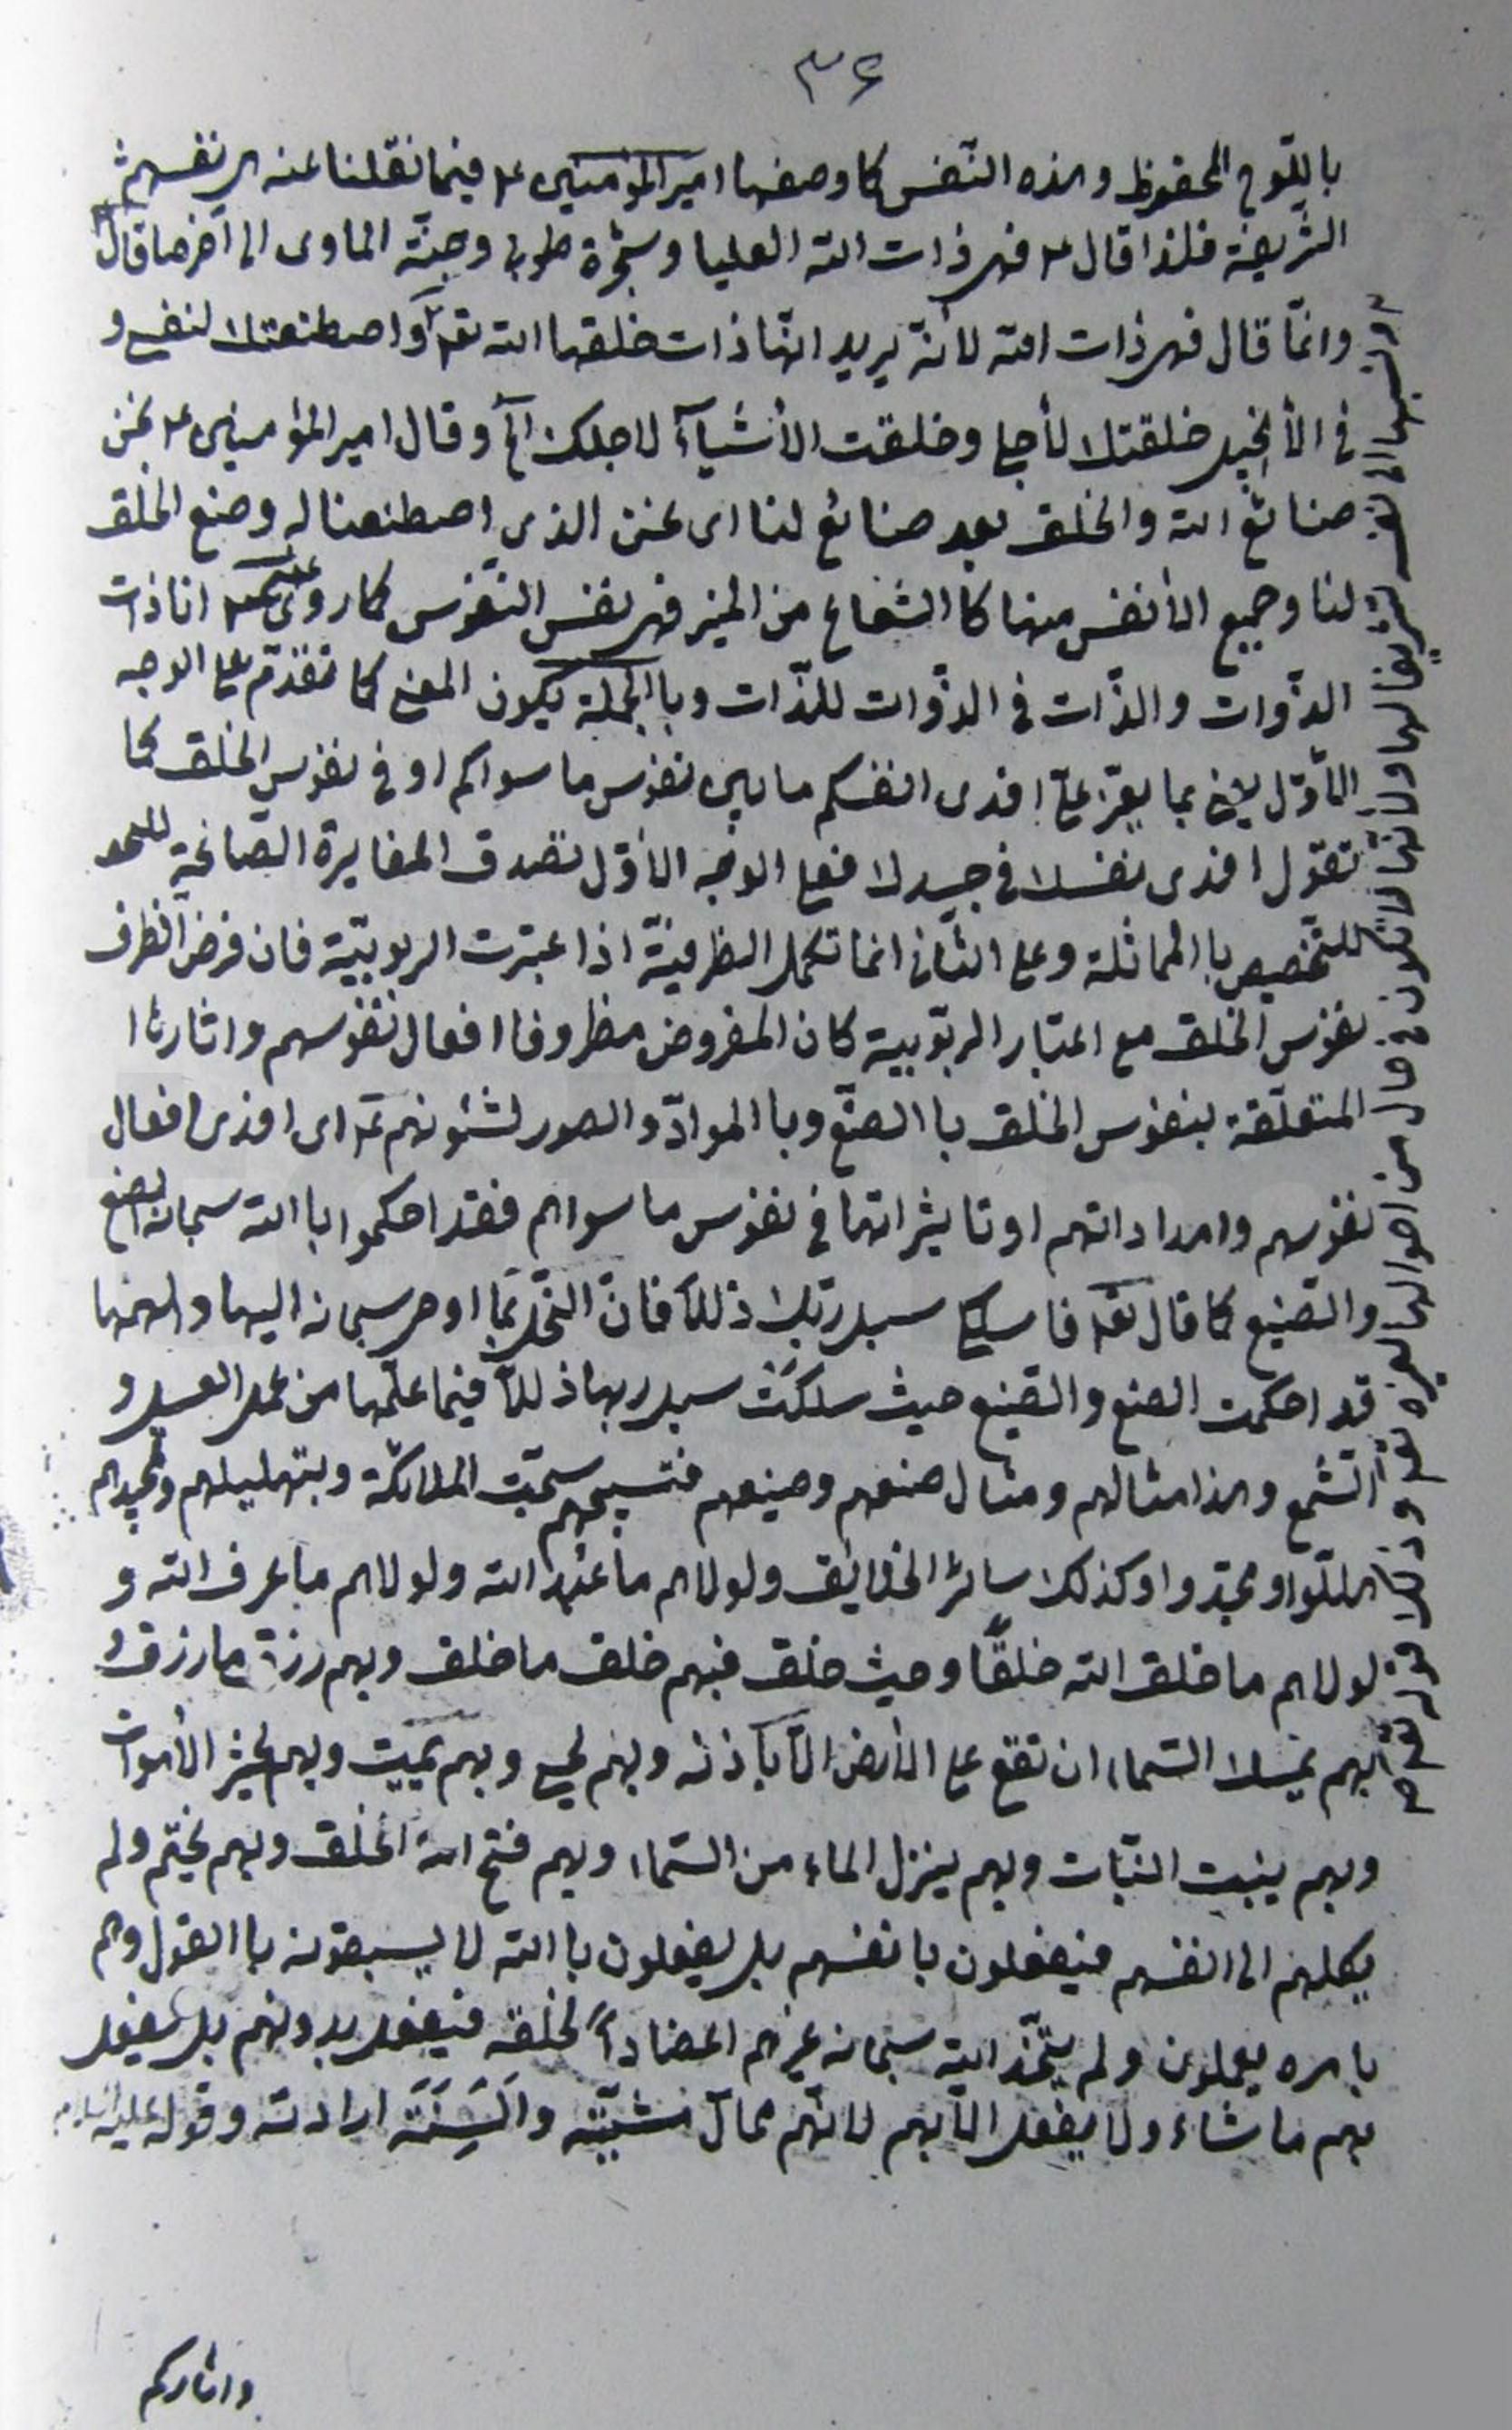 ٣٤
باللّوح المحفوظ وهذه النّفس كما وصفها امير المؤمنين ع فيما نقلنا عنه هى نفسهم
الشّريفة فلذا قال ع فهى ذات الله العليا وشجرة طوبى وجنّة الماوى الى آخر ما قال
وانّما قال فهى ذات الله لانّه يريد انّها ذات خلقها الله تعالى واصطنعتك لنفسى و
فى الأنجيل خلقتك لأجلى وخلقت الأشيآء لاجلك الخ وقال امير المؤمنين ع نحن
صنائع الله والخلق بعد صنائع لنا اى نحن الذى اصطنعنا له وصنع الخلق
لنا وجميع الأنفس منها كاالشعاع من المنير فهى نفس النّفوس كما روى عنه انا ذات
الذّوات والذّات فى الذّوات للذّات وباالجملة يكون المعنى كما تقدّم على الوجه
الأوّل يعنى بما يعزّ علىّ افدى انفسكم ما بين نفوس ما سواكم او فى نفوس الخلق كما
تقول افدى نفسك فى جسدك فعلى الوجه الأوّل تصدق المغايرة الصّالحة
للتّخصيص باالمماثلة وعلى الثّانى انما تكمل الظرفيّة اذا عبّرت الربوبيّة فان فرض الظرف
نفوس الخلق مع اعتبار الربّوبية كان المفروض مظروفا افعال نفوسهم واثارها
المتعلّقة بنفوس الخلق باالصنّع وباالموادّ والصور لشئونهم اى افدى افعال
نفوسهم وامداداتهم او تاثيراتها فى نفوس ما سواهم فقد احكموا باالله سبحانه الصنع
والصّنيع كما قال تعالى فاسلكى سبل ربّك ذللاً فانّ النّحل بما اوحى سبحانه اليها والهمها
قد احكمت الصنع والصّنيع حيث سلكت سبل ربها ذللاً فيما علّمها من عمل العسل و
الشّمع وهذا مثالهم ومثال صنعهم وصنيعهم فبتسبيحهم سبّحت الملائكة وبتهليلهم وتمجيدهم
هلّلوا ومجّدوا وكذلك سائر الخلايق ولولاهم ما عُبِد الله ولولاهم ما عرف الله و
لولاهم ما خلق الله خلقًا وحيث خلق فبهم خلق ما خلق وبهم رزق ما رزق و
بهم يمسك السّماء ان تقع على الأرض الّا بأذنه وبهم يحيى وبهم يميت وبهم يحشر الأموات
وبهم ينبت النّبات وبهم ينزل الماء من السّماء وبهم فتح الله الخلق وبهم يختم ولم
يكلهم الى انفسهم فيفعلون بانفسهم بل يفعلون باالله لا يسبقونه باالقول وهم
بامره يعملون ولم يتّخذ الله سبحانه غيرهم اعضاداً لخلقه فيفعل بدونهم بل يفعل
بهم ما شاء ولا يفعل الّا بهم لانّهم محالّ مشيّته والسنة ارادته وقوله عليه السلام
واثاركم
ونسبها الى نفسه تشريفا لها ولانّها لا تكون فى حال من احوالها لغيره تعالى